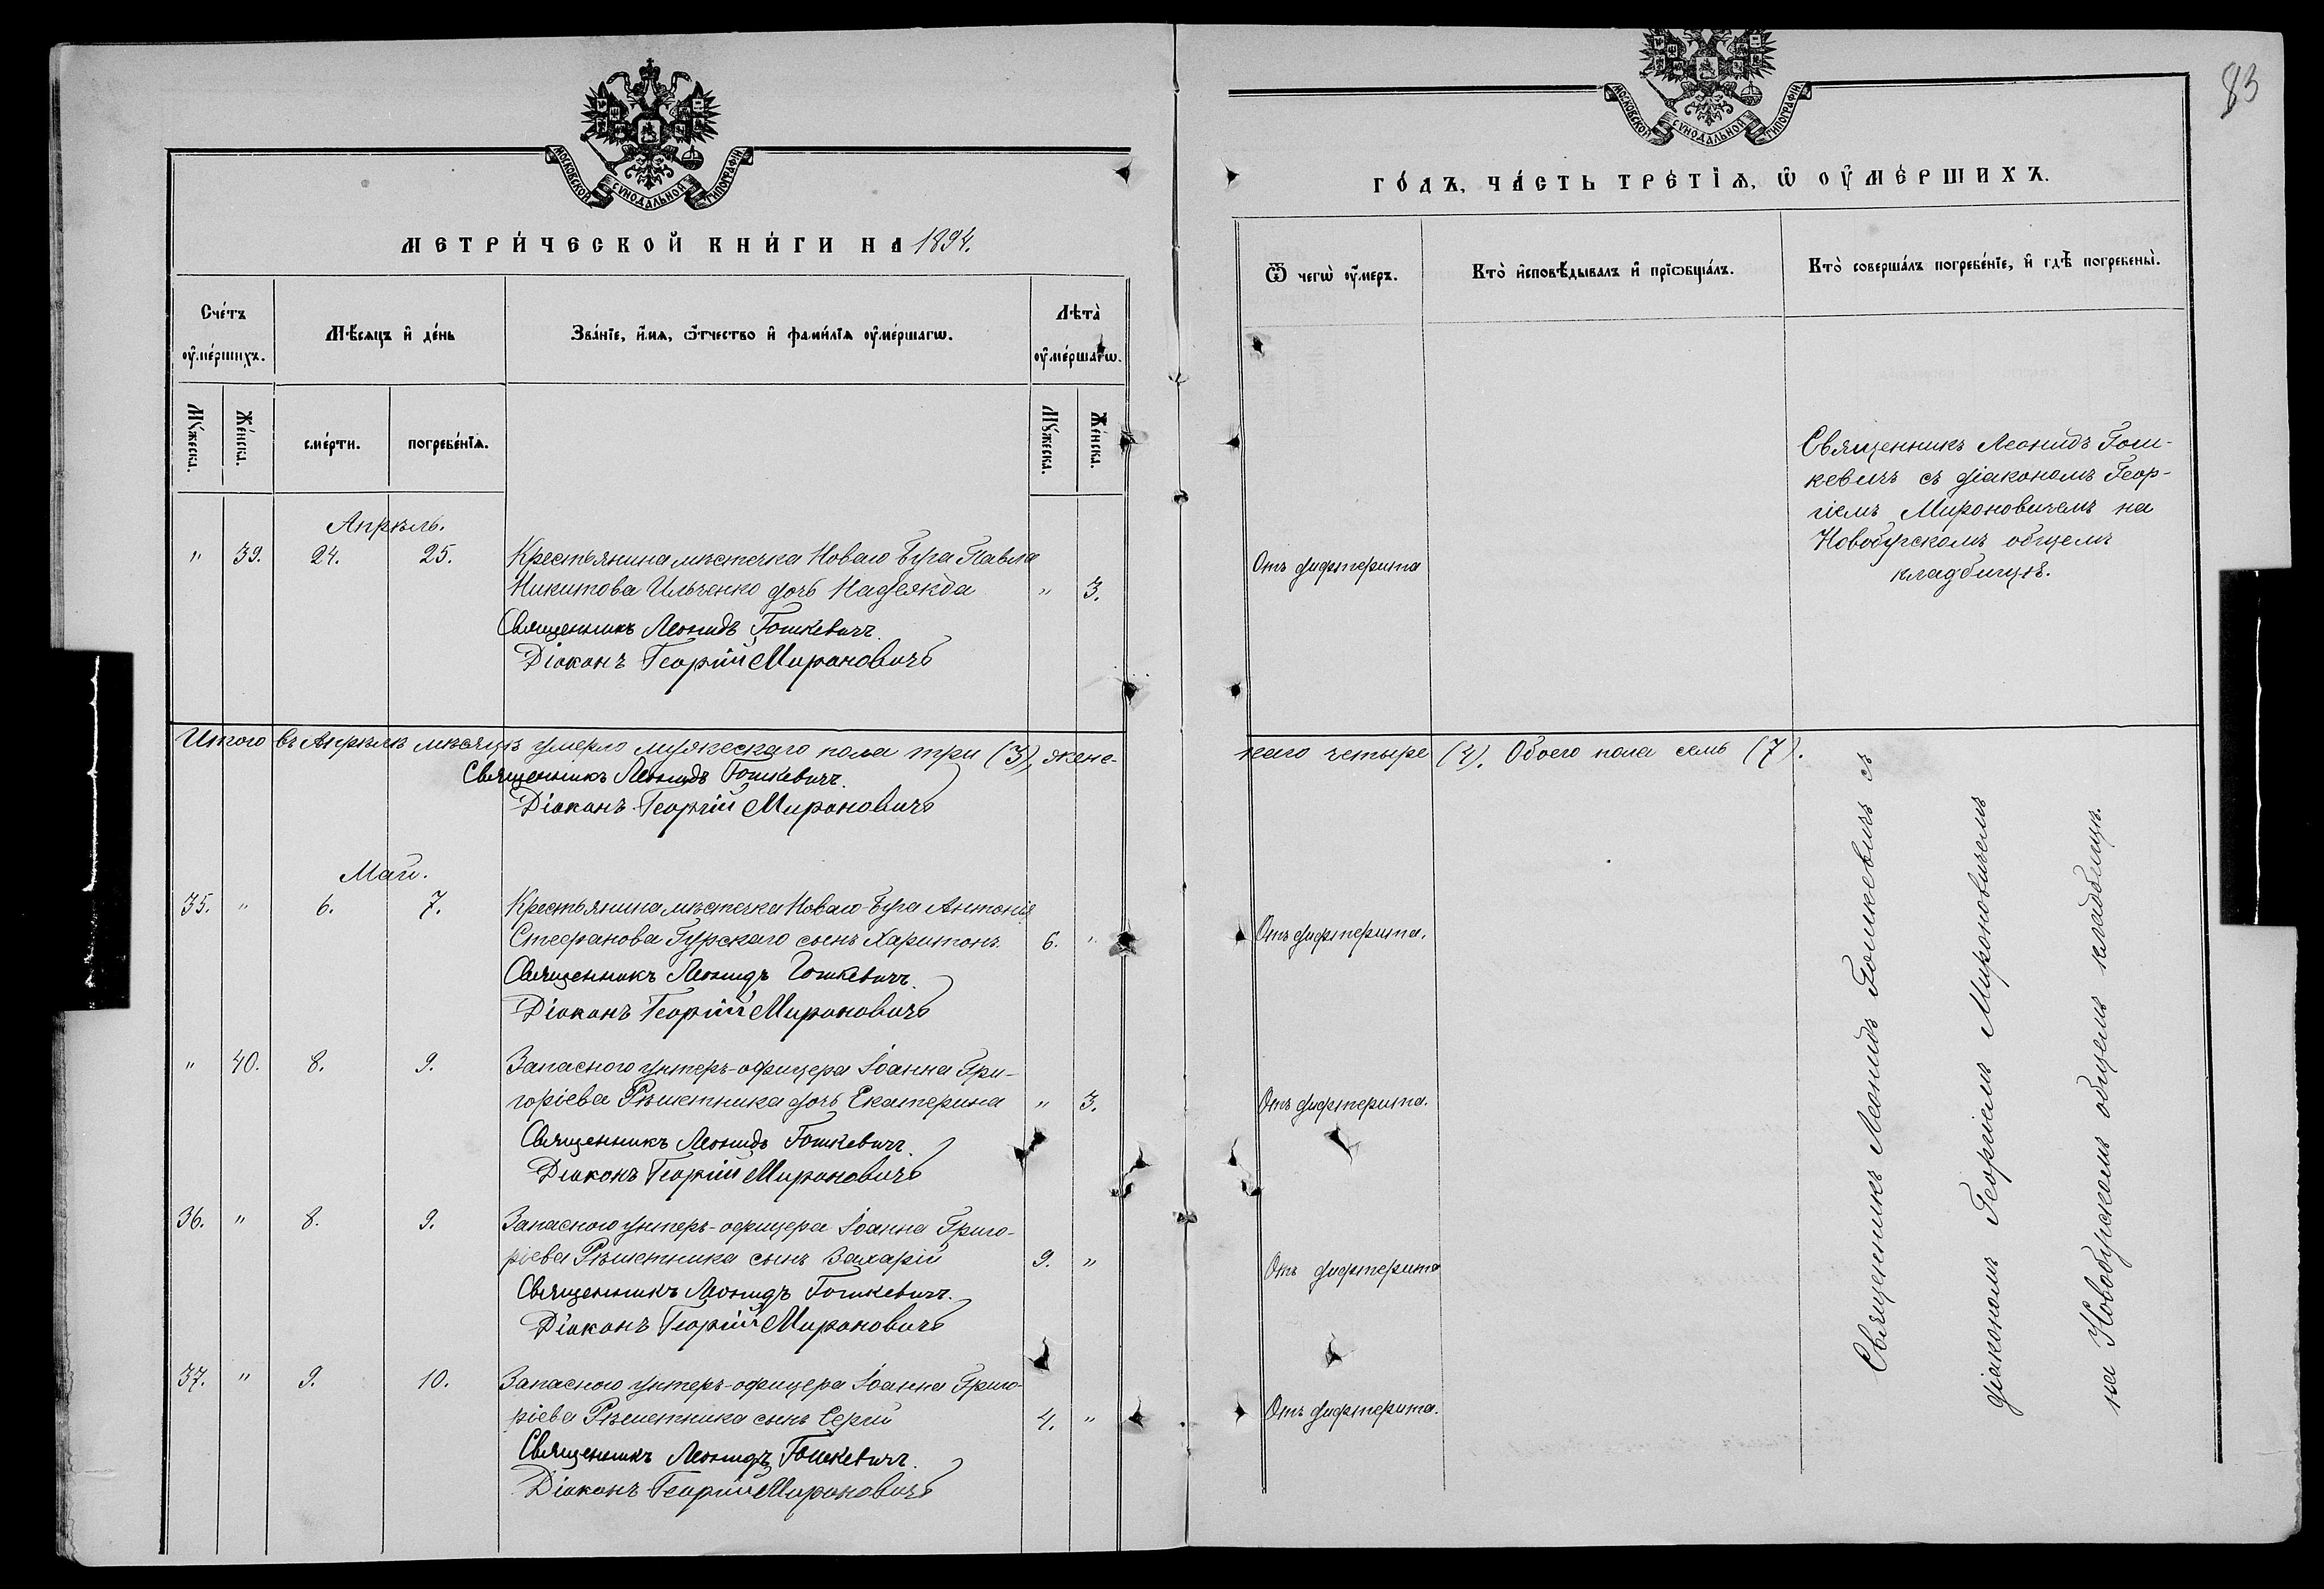 МОСКОВСКОЙ СѴНОДАЛЬНОЙ ТИПОГРАФІИ
МЕТРИ́ЧЕСКОЙ КНИ́ГИ НА 1894.
Сче́тъ оу҆ме́ршихъ.
Мѣ́сяцъ и҆ де́нь
Зва́нїе, и҆́мя, ѻ҆́тчество и҆ фами́лїѧ оу҆ме́ршагѡ.
Лѣта̀ оу҆ме́ршагѡ.
Мꙋ́жеска.
Же́нска.
сме́рти.
погребе́нїѧ.
Мꙋ́жеска.
Же́нска.
Апрѣль.
" 39. 24. 25. Крестьянина мѣстечка Новаго Буга Павла
Никитова Ильченко дочь Надежда " 3.
Священникъ Леонидъ Гошкевичъ.
Діаконъ Георгій Мироновичъ
Итого въ Апрѣлѣ мѣсяцѣ умерло мужескаго пола три (3), женс-
Священникъ Леонидъ Гошкевичъ.
Діаконъ Георгій Мироновичъ
Май.
35. " 6. 7. Крестьянина мѣстечка Новаго-Буга Антонія
Стефанова Гурскаго сынъ Харитонъ. 6. "
Священникъ Леонидъ Гошкевичъ.
Діаконъ Георгій Мироновичъ
" 40. 8. 9. Запасного унтеръ-офицера Іоанна Гри-
горіева Рѣшетника дочь Екатерина " 3.
Священникъ Леонидъ Гошкевичъ.
Діаконъ Георгій Мироновичъ
36. " 8. 9. Запасного унтеръ-офицера Іоанна Григо-
ріева Рѣшетника сынъ Захарій 9. "
Священникъ Леонидъ Гошкевичъ.
Діаконъ Георгій Мироновичъ
37. " 9. 10. Запасного унтеръ-офицера Іоанна Григо-
ріева Рѣшетника сынъ Сергій 4. "
Священникъ Леонидъ Гошкевичъ.
Діаконъ Георгій Мироновичъ
83
МОСКОВСКОЙ СѴНОДАЛЬНОЙ ТИПОГРАФІИ
ГО́ДЪ, ЧА́СТЬ ТРЕ́ТЇѦ, Ѡ҆ ОУ҆МЕ́РШИХЪ.
Ѿ чегѡ̀ оу҆́меръ.
Кто̀ и҆сповѣ́дывалъ и҆ прїѡбща́лъ.
Кто̀ соверша́лъ погребе́нїе, и҆ гдѣ̀ погребены̀.
Священникъ Леонидъ Гош-
кевичъ съ діакономъ Геор-
гіемъ Мироновичемъ на
Новобугскомъ общемъ
кладбищѣ.
Отъ дифтерита
каго четыре (4). Обоего пола семь (7).
Отъ дифтерита.
Отъ дифтерита.
Отъ дифтерита
Отъ дифтерита.
Священникъ Леонидъ Гошкевичъ съ
діакономъ Георгіемъ Мироновичемъ
на Новобугскомъ общемъ кладбищѣ.